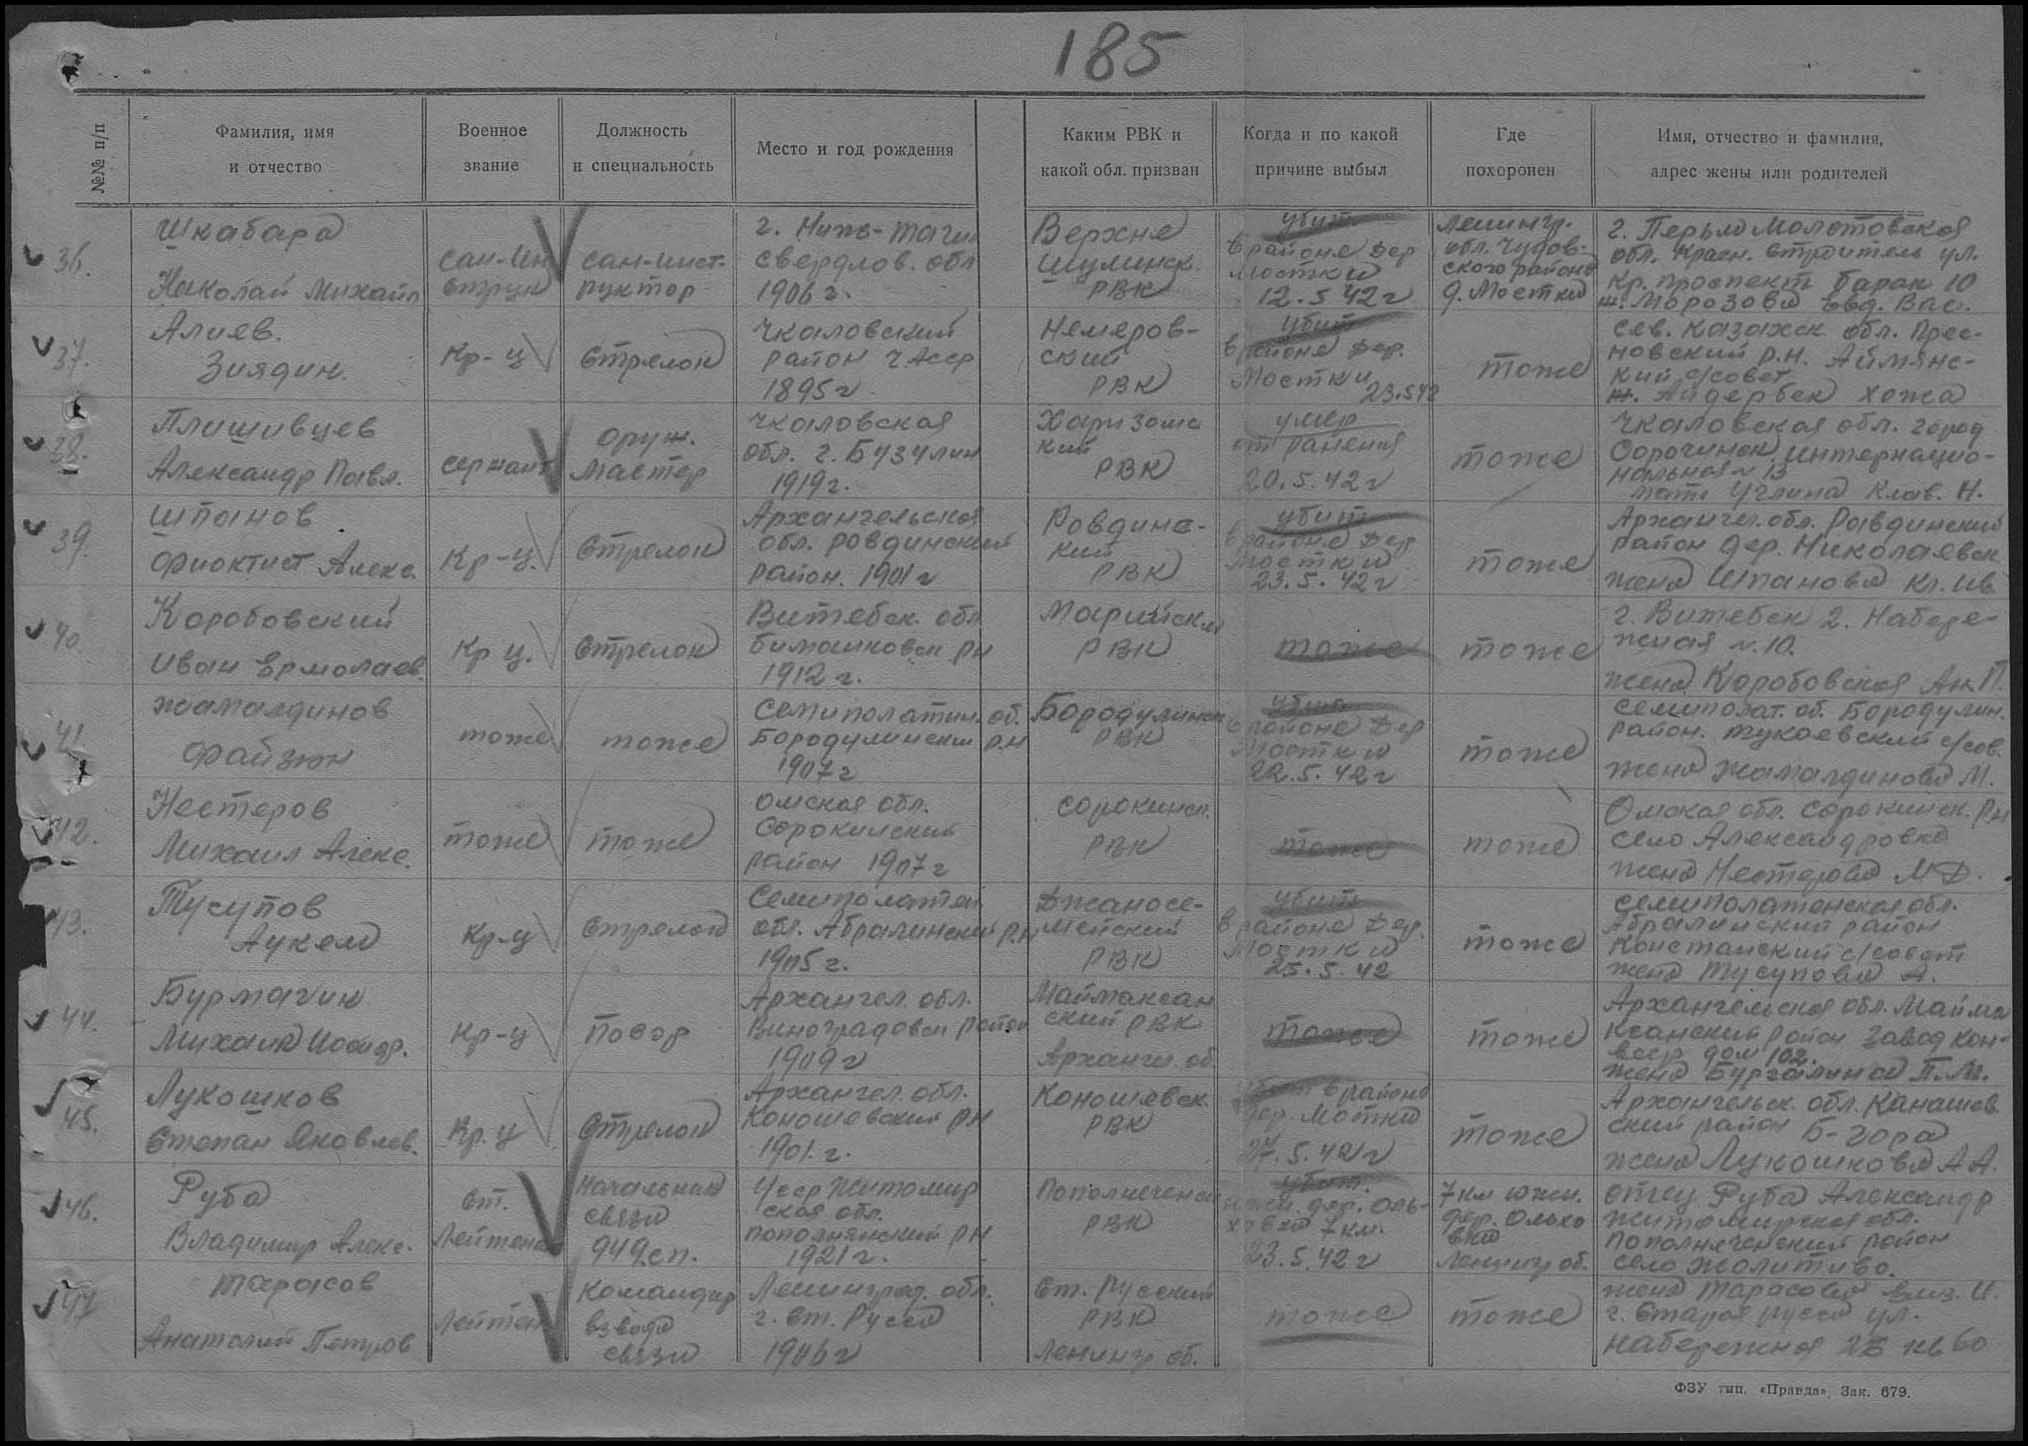 185
№№ п/п
Фамилия, имя
и отчество
Военное
звание
Должность
и специальность
Место и год рождения
Каким РВК и
какой обл. призван
Когда и по какой
причине выбыл
Где
похоронен
Имя, отчество и фамилия,
адрес жены или родителей
36.
Шкабара
Николай Михайл
сан-ин
струк
сан-инст-
руктор
г. Ниж-Тагил
свердлов. обл
1906 г.
Верхне
Шулинск.
РВК
убит
в районе дер
Мостки
12.5 42 г
Ленингр.
обл. Чудов-
ского района
д. Мостки
г. Пермь Молотовская
обл. Красн. строитель ул.
Кр. проспект барак 10
ж. Морозова Евд. Вас.
37.
Алиев.
Зиядин.
Кр-ц
Стрелок
Чкаловский
район Ч. Асср
1895 г
Немеров-
ский
РВК
убит
в районе дер.
Мостки
23.5 42
тоже
Сев. Казахск. обл. Прес-
новский р.н. Аймянс-
кий с/совет
ж. Айдербек Хожа
38.
Плишивцев
Александр Павл.
сержант
оруж.
мастер
Чкаловская
обл. г. Бузулук
1919 г.
кий
РВК
умер
от ранения
20.5.42 г
тоже
Чкаловская обл. город
Сорочинск интернацио-
нальная № 13
мать Углина Клав. Н.
39.
Шпанов
Фиоктист Алекс.
Кр-ц.
Стрелок
Архангельская
обл. Ровдинский
район. 1901 г
Ровдинс-
кий
РВК
убит
в районе дер
Мостки
23.5.42 г
тоже
Архангел. обл. Равдинский
район дер. Николаевск
жена Шпанова Кл. Ив
40
Коробовский
Иван Ермолаев.
Кр ц.
Стрелок
Витебск. обл
бишанковск рн
1912 г.
Марийский
РВК
тоже
тоже
г. Витебск 2. Набере-
жная № 10.
жена Коробовская Ан П.
41
Жамалдинов
Файзюн
тоже
тоже
Семиполатин. об.
Бородулинский р.н
1907 г
Бородулинск
РВК
убит
в районе дер
Мостки
22.5.42 г
тоже
Семиполат. об. Бородулин.
район. Тукаевский с/сов.
жена Жамалдинова М.
42.
Нестеров
Михаил Алекс.
тоже
тоже
Омская обл.
Сорокинский
район 1907 г
Сорокинск.
РВК
тоже
тоже
Омская обл. Сорокинск. рн
село Александровка
жена Нестерова М Д.
43.
Тусупов
Аукем
Кр-ц
Стрелок
Семиполатен
обл. Абралинский р.н
1905 г.
Джаносе-
мейский
РВК
убит
в районе дер.
Мостки
25.5.42
тоже
Семиполатенская обл.
Абралинский район
Констанский с/совет
жена Тусупова А.
44.
Бурмагин
Михаил
Кр-ц
Повар
Архангел. обл.
Виноградовск район
1909 г
Маймаксан
ский РВК
Архангел. об
тоже
тоже
Архангельская обл. Майма
ксанский район завод кон-
жена Бурмагина П.М.
45.
Лукошков
Степан Яковлев.
Кр. ц
Стрелок
Архангел. обл.
Коношевский рн
1901. г.
Коношевск.
РВК
убит в районе
дер. Мостки
27.5.42 г
тоже
Архангельск. обл. Канашев
ский район Б-гора
жена Лукошкова А А.
46.
Руба
Владимир Алекс.
Ст.
Лейтена
Начальник
связи
949 сп.
Усср Житомир
ская обл.
пополнянский рн
1921 г.
Пополнеченск
РВК
убит.
южн. дер. Оль-
ховка 7 км.
23.5.42 г
7 км южн.
дер. Ольхо
вка
Ленингр об.
отец Руба Александр
Житомирская обл.
Пополняченский район
село Жолитиво.
47
Тарасов
Анатолий Петров
Лейтен
Командир
взвода
связи
Ленинград. обл.
г. Ст. Русса
1906 г
Ст. Русский
РВК
Ленингр об.
тоже
тоже
жена Тарасова Елиз. И.
г. Старая русса ул.
набережная 26 кв 60
ФЗУ тип. «Правда». Зак. 679.